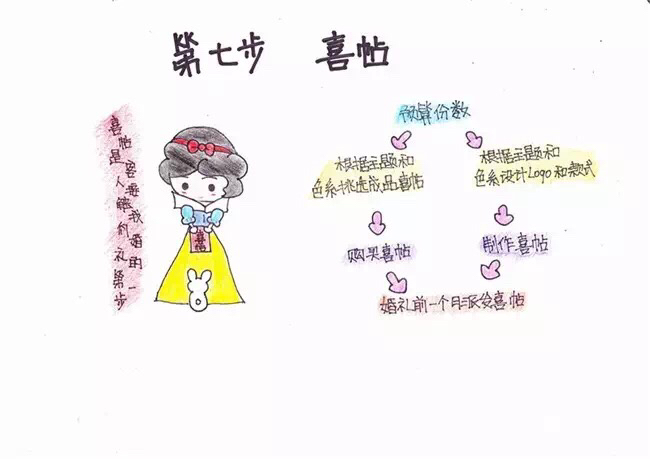 第七步 喜帖
喜帖是客人
接触我们婚
礼的第一步
喜帖
预算份数
根据主题和
色系挑选成品喜帖
根据主题和
色系设计Logo和款式
购买喜帖
制作喜帖
婚礼前一个月派发喜帖